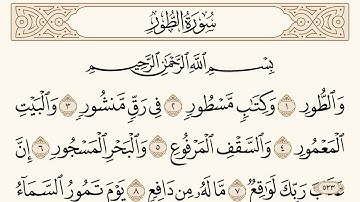 سُورَةُ الطُّورِ
بِسْمِ اللَّهِ الرَّحْمَٰنِ الرَّحِيمِ
وَالطُّورِ ١ وَكِتَابٍ مَّسْطُورٍ ٢ فِي رَقٍّ مَّنشُورٍ ٣ وَالْبَيْتِ
الْمَعْمُورِ ٤ وَالسَّقْفِ الْمَرْفُوعِ ٥ وَالْبَحْرِ الْمَسْجُورِ ٦ إِنَّ
عَذَابَ رَبِّكَ لَوَاقِعٌ ٧ مَّا لَهُ مِن دَافِعٍ ٨ يَوْمَ تَمُورُ السَّمَاءُ
٥٢٣